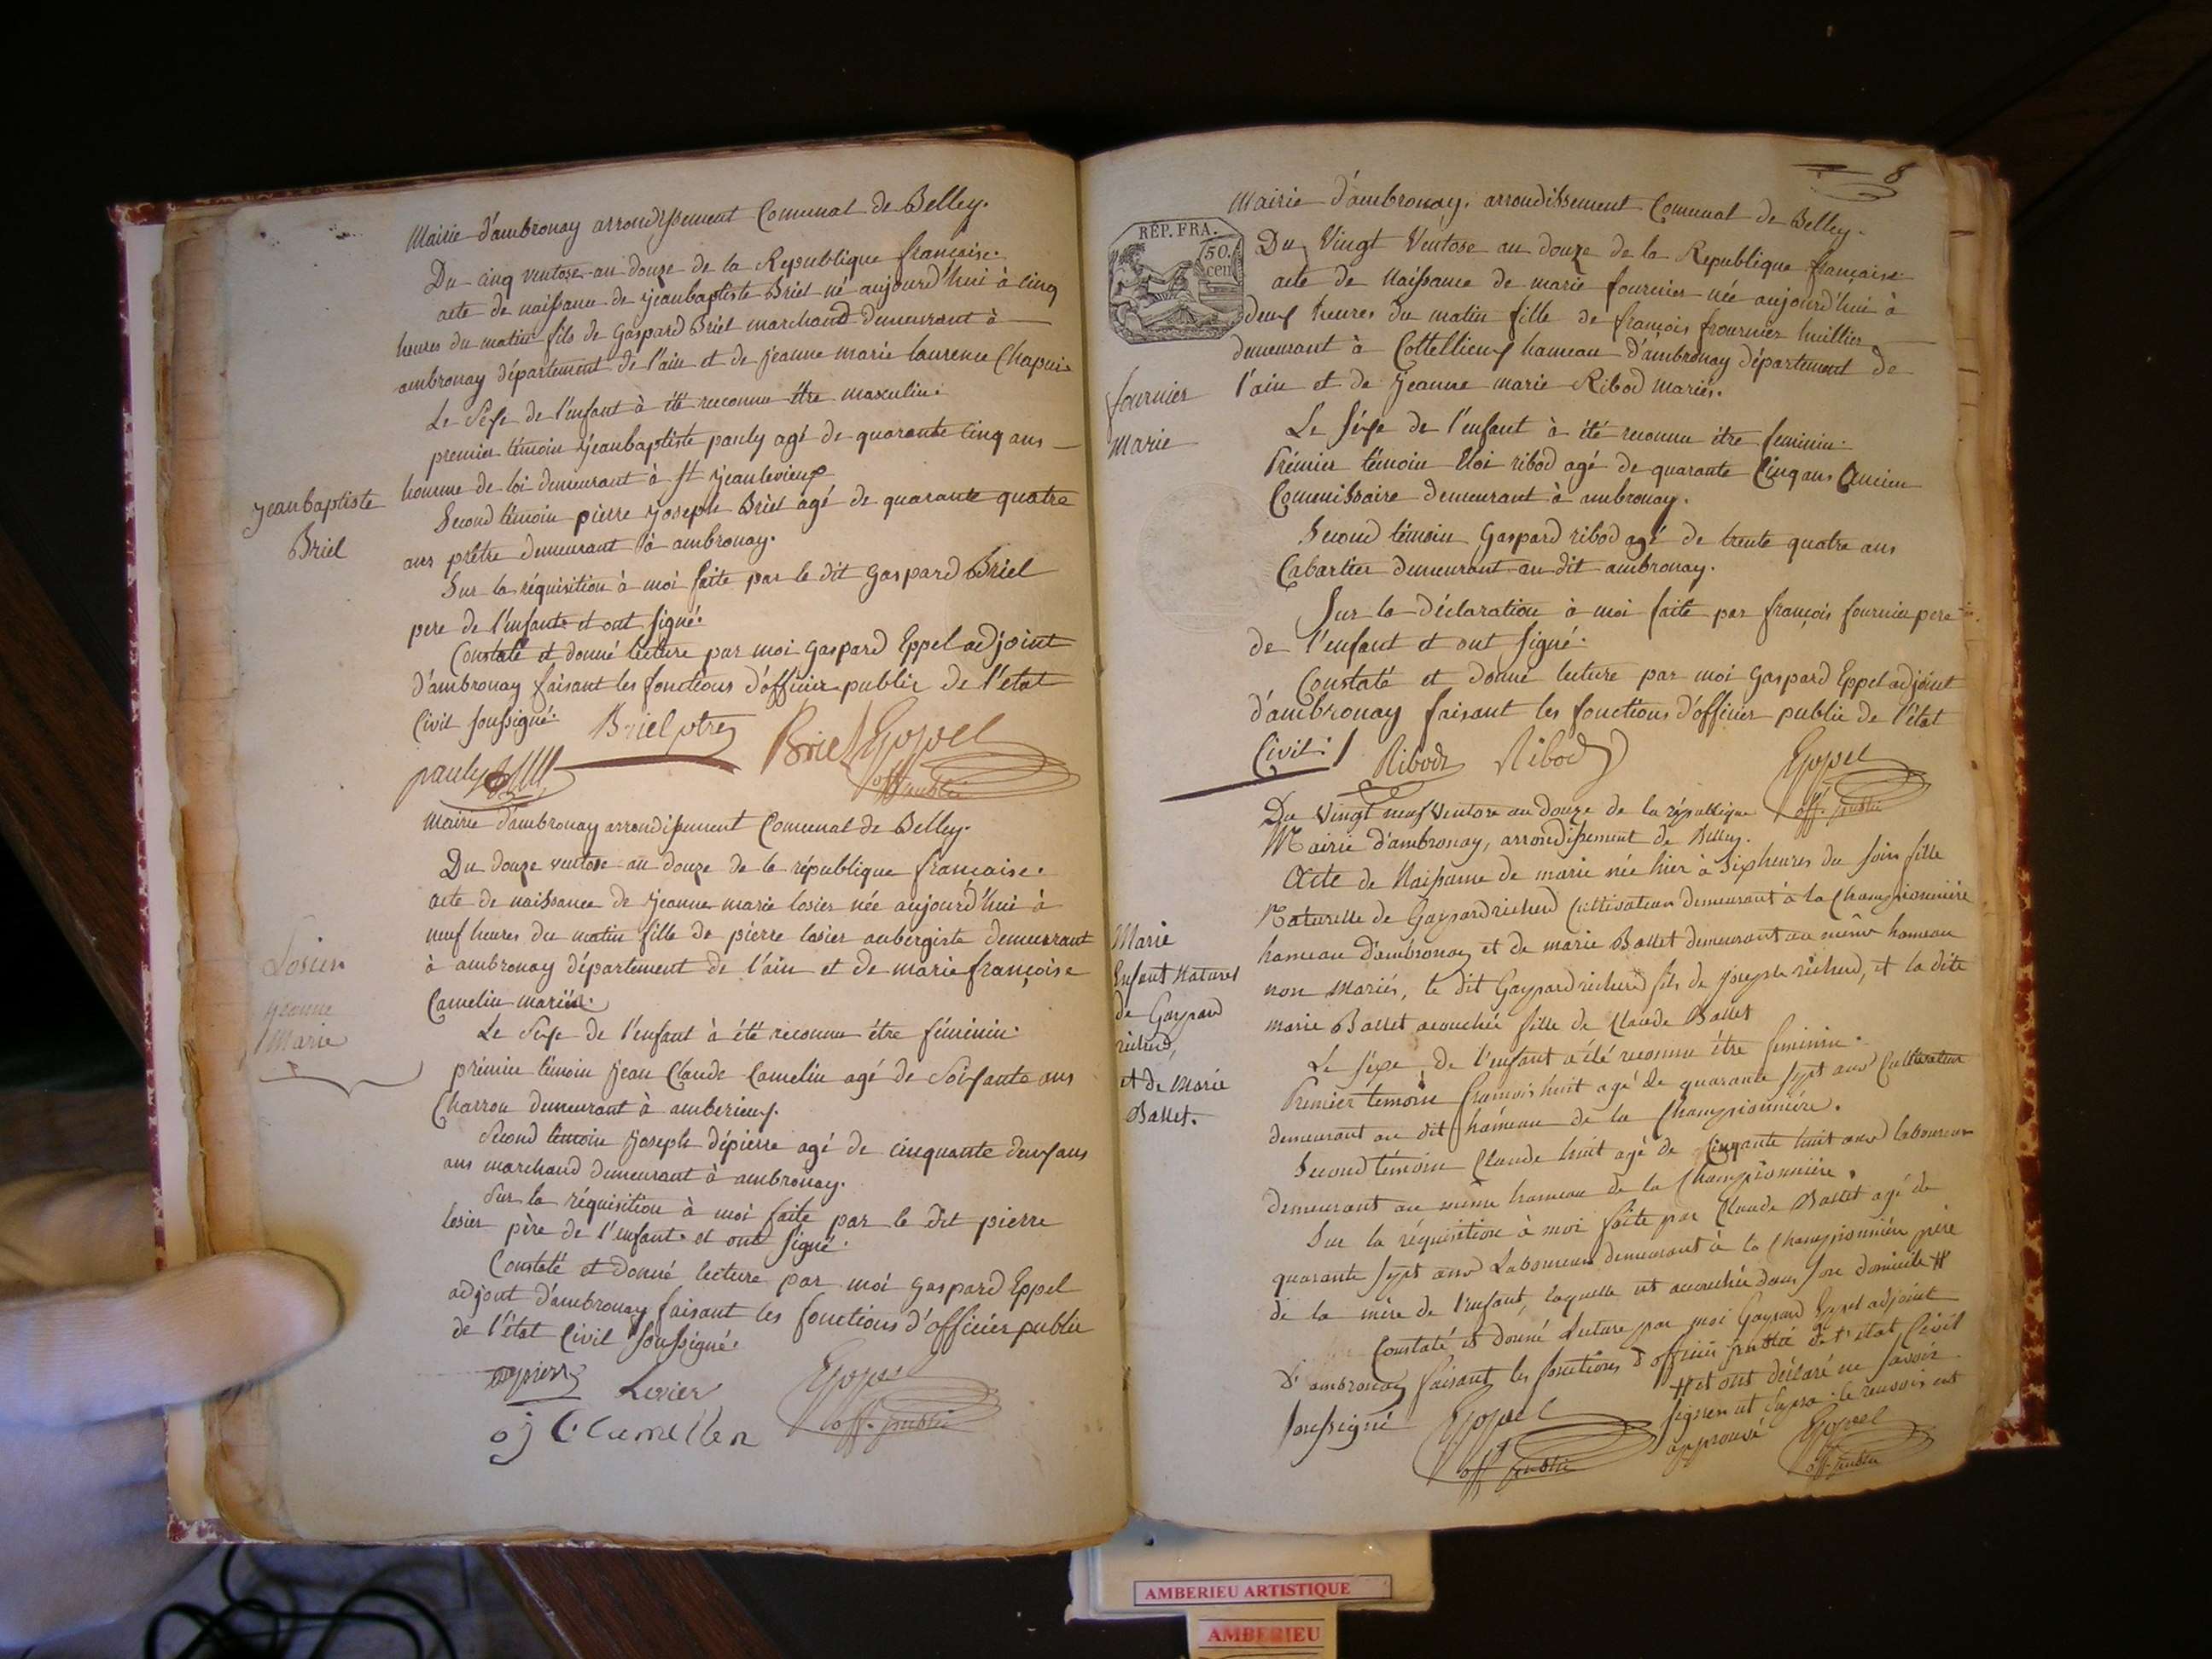 Mairie d'ambronay arrondissement Comunal de Belley.
Du cinq ventose an douze de la Republique française.
acte de naissance de jeanbaptiste Briel né aujourd'hui à cinq
heures du matin fils de gaspard Briel marchand demeurant à
ambronay département de l'ain et de jeanne marie laurence Chapuis
Le Sexe de l'enfant à été reconnu être masculin.
premier témoin jeanbaptiste pauly agé de quarante cinq ans
homme de loi demeurant à st jeanlevieux
Second témoin pierre joseph Briel agé de quarante quatre
ans prêtre demeurant à ambronay.
Sur la réquisition à moi faite par le dit gaspard Briel
pere de l'enfant et ont signé.
Constaté et donné lecture par moi gaspard Eppel adjoint
d'ambronay faisant les fonctions d'officier public de l'état
Civil soussigné.
Briel ptre
Briel
Eppel
off public
pauly
jeanbaptiste
Briel
Mairie d'ambronay arrondissement Comunal de Belley.
Du douze ventose an douze de la république française.
acte de naissance de jeanne marie losier née aujourd'hui à
neuf heures du matin fille de pierre losier aubergiste demeurant
à ambronay département de l'ain et de marie françoise
Camelin mariés.
Le Sexe de l'enfant à été reconnu être féminin.
prémier témoin jean Claude Camelin agé de Soixante ans
Charron demeurant à amberieux.
Second témoin joseph dépierre agé de cinquante deux ans
ans marchand demeurant à ambronay.
Sur la réquisition à moi faite par le dit pierre
losier père de l'enfant et ont signé.
Constaté et donné lecture par moi gaspard Eppel
adjoint d'ambronay faisant les fonctions d'officier public
de l'état Civil soussigné.
Losier
Eppel
off. public
jeanne
Marie
8
Mairie d'ambronay, arrondissement Comunal de Belley.
REP. FRA.
50.
cen
Du Vingt Ventose an douze de la Republique française
acte de Naissance de marie fournier née aujourd'hui à
deux heures du matin fille de françois frournier huillier
demeurant à Cottellieux hameau d'ambronay département de
l'ain et de jeanne marie Ribod mariés.
fournier
Marie
Le séxe de l'enfant à été reconnu être feminin.
Prémier témoin Eloi ribod agé de quarante Cinq ans Ancien
Commissaire demeurant à ambronay.
Second témoin Gaspard ribod agé de trente quatre ans
Cabartier demeurant au dit ambronay.
Sur la déclaration à moi faite par françois fournier pere
de l'enfant et ont signé.
Constaté et donné lecture par moi gaspard Eppel adjoint
d'ambronay faisant les fonctions d'officier public de l'état
Civil.
Ribod
Ribod
Eppel
off. public
Du vingt neuf Ventose an douze de la république
Mairie d'ambronay, arrondissement de Belley.
Acte de Naissance de marie née hier à Six heures du soir fille
Naturelle de Gaspard richerd Cultivateur demeurant à la Championnière
hameau d'ambronay et de marie Ballet demeurant au même hameau
non mariés, le dit Gaspard richerd fils de joseph richerd, et la dite
marie Ballet acouchée fille de Claude Ballet
Le séxe de l'enfant a été reconnu être feminin.
Premier témoin francois huit agé de quarante sept ans Cultivateur
demeurant au dit hameau de la Championnière.
Second témoin Claude huit agé de Cinquante huit ans laboureur
demeurant au même hameau de la Championnière.
Sur la réquisition à moi faite par Claude Ballet agé de
quarante sept ans Laboureur demeurant à la Championnière père
de la mère de l'enfant, laquelle est acouchée dans son domicile #
Constaté et donné lecture par moi Gaspard Eppel adjoint
d'ambronay faisant les fonctions d'officier public de l'état Civil
soussigné
# et ont déclaré ne savoir
signer ut supra. le renvois est
approuvé
Eppel
off public
Eppel
off. public
Marie
Enfant Naturel
de Gaspard
richerd,
et de Marie
Ballet.
AMBERIEU ARTISTIQUE
AMBERIEU